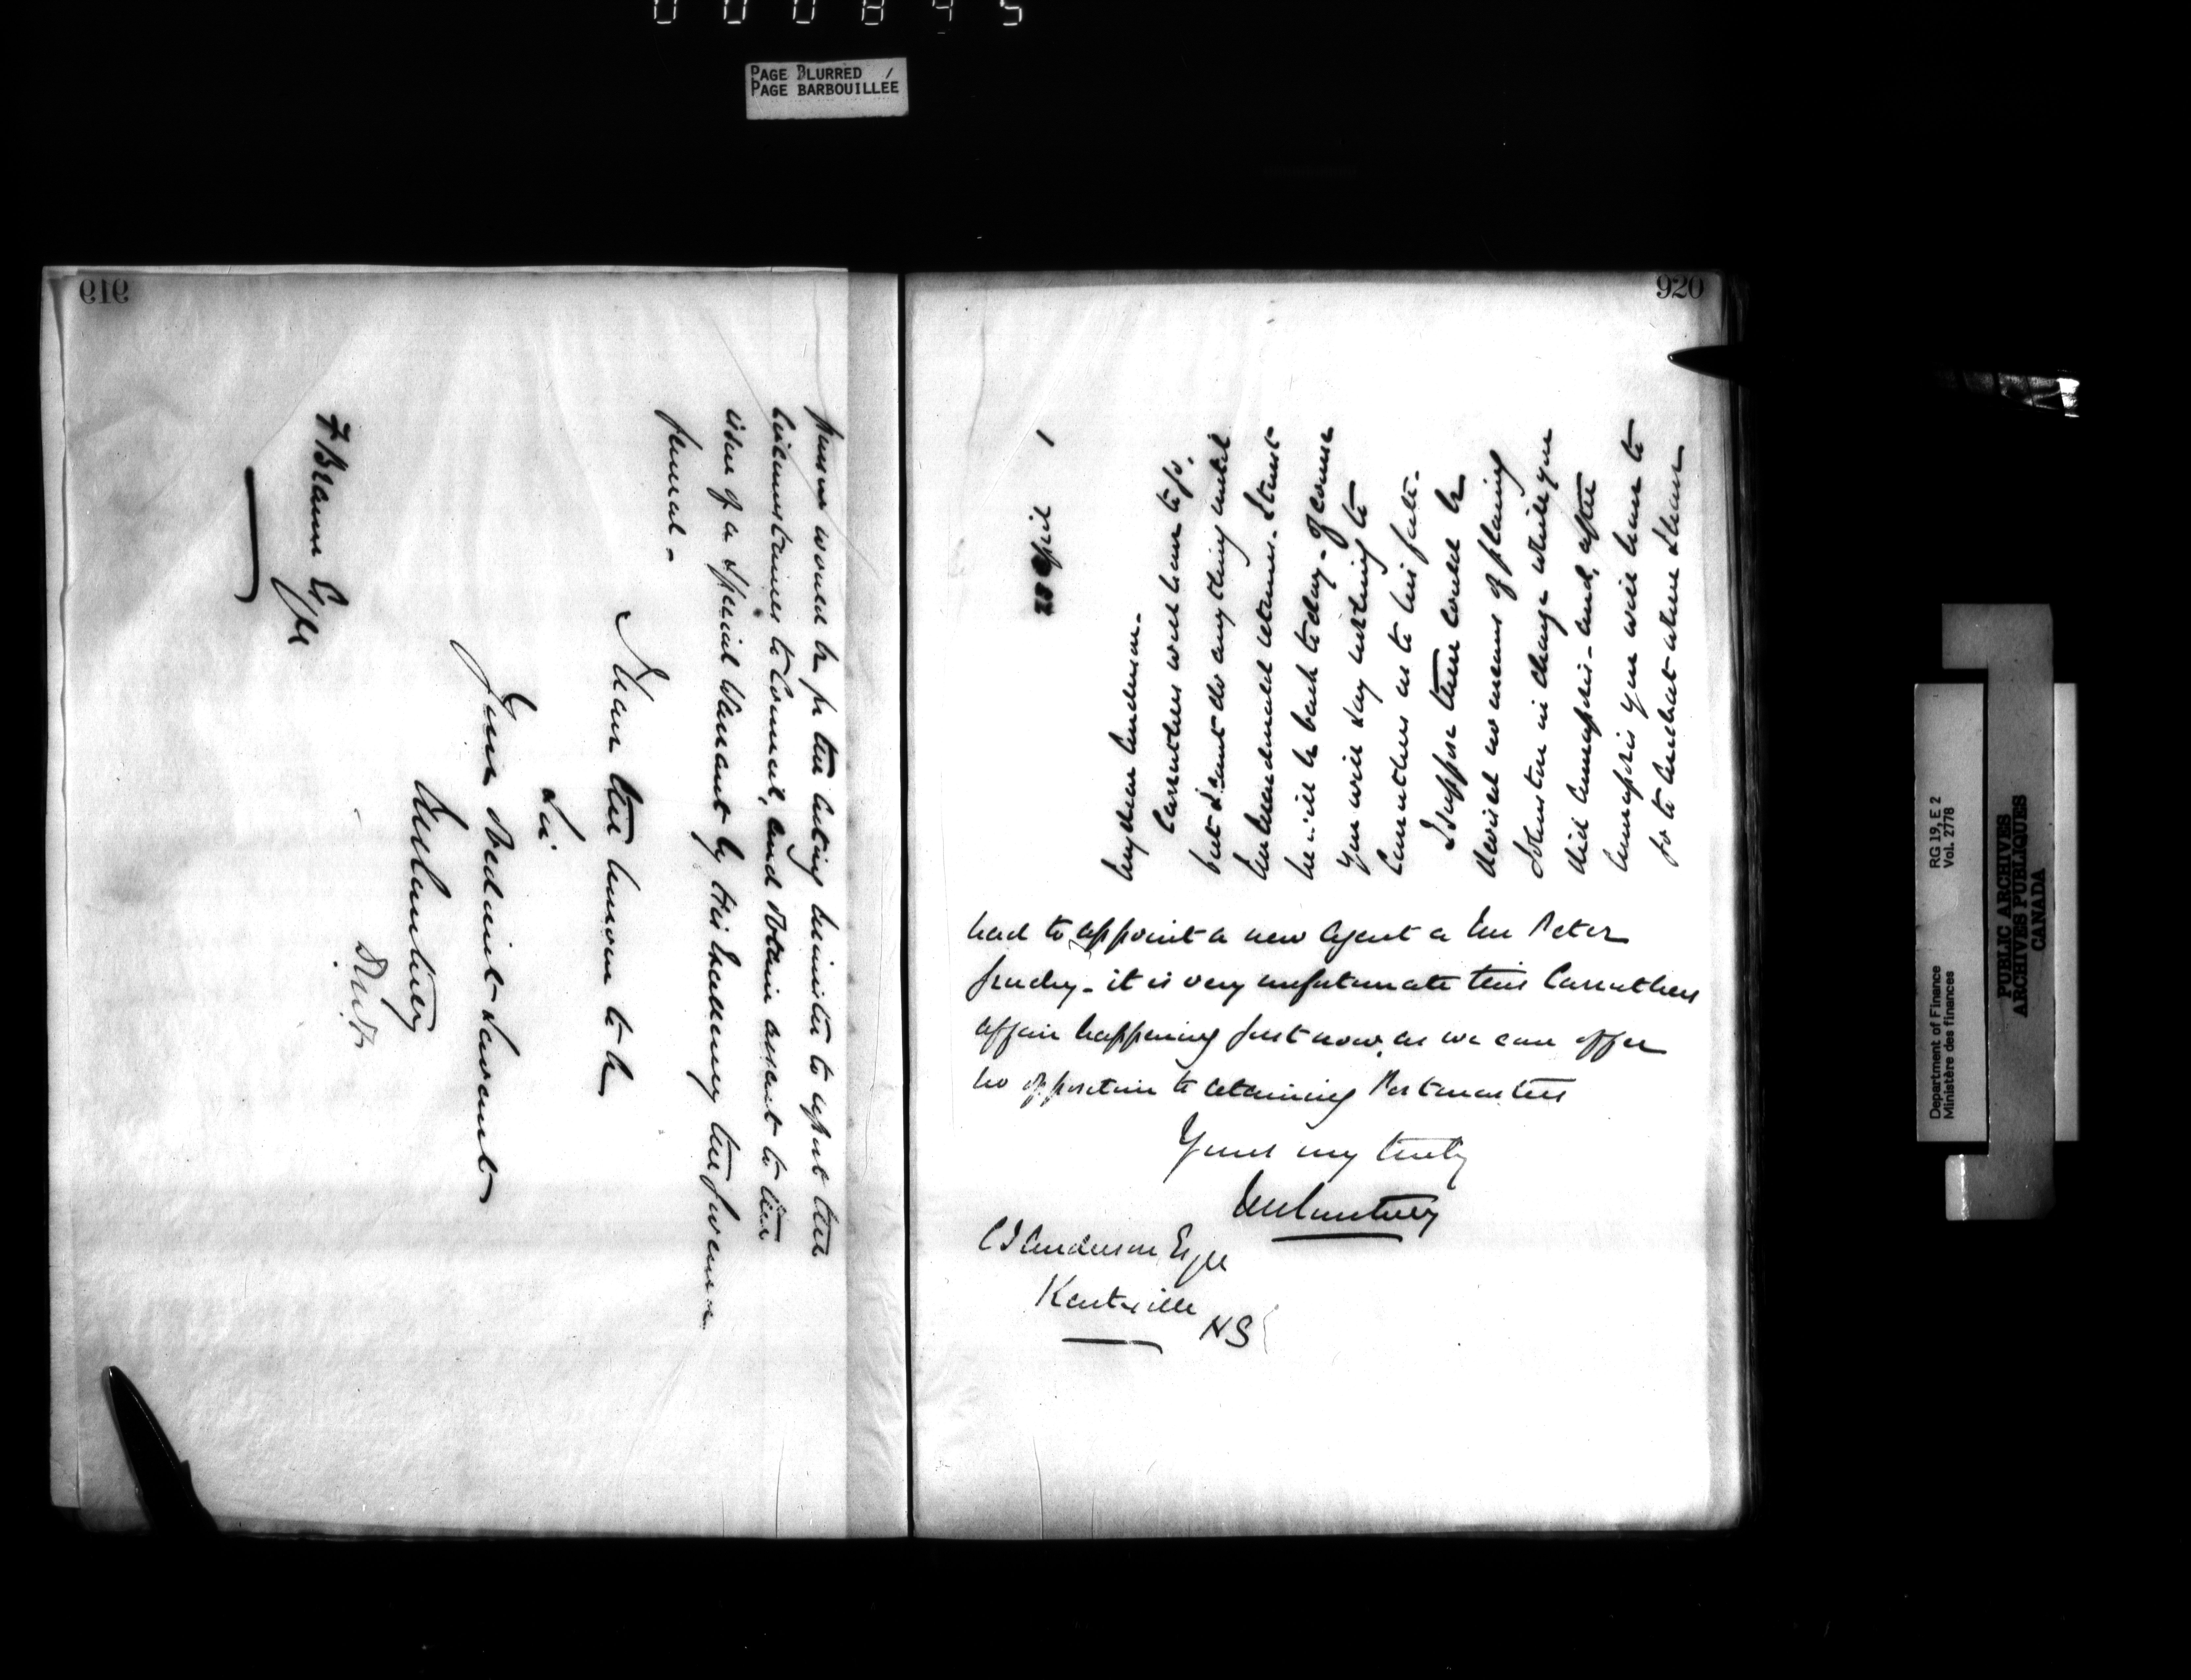 000845
PAGE BLURRED
PAGE BARBOUILLÉE
919
would be for the acting minister to report the
circumstances to Council, and obtain assent to the
issue of a special Warrant by His Excellency the Governor
General -
I have the honour to be
Sir
Your Obedient Servant
J M Courtney
F Braun Esqre
920
28 April 1
My dear Anderson -
Carruthers will have to go.
but I can't do anything until
returns. I trust
he will be back today - Of course
you will say nothing to
Carruthers as to his fate -
I suppose there could be
devised no means of placing
Johnston in charge while you
did Annapolis - and, after
Annapolis you will have to
go to where I have
had to appoint a new agent a Mr Peter
- it is very unfortunate this Carruthers
affair happening just now, as we can offer
no opposition to retaining Postmasters
Yours very truly
J M Courtney
C J Anderson Esqre
Kentville
NS
Department of Finance
Ministère des finances
RG 19, E 2
Vol. 2778
PUBLIC ARCHIVES
ARCHIVES PUBLIQUES
CANADA